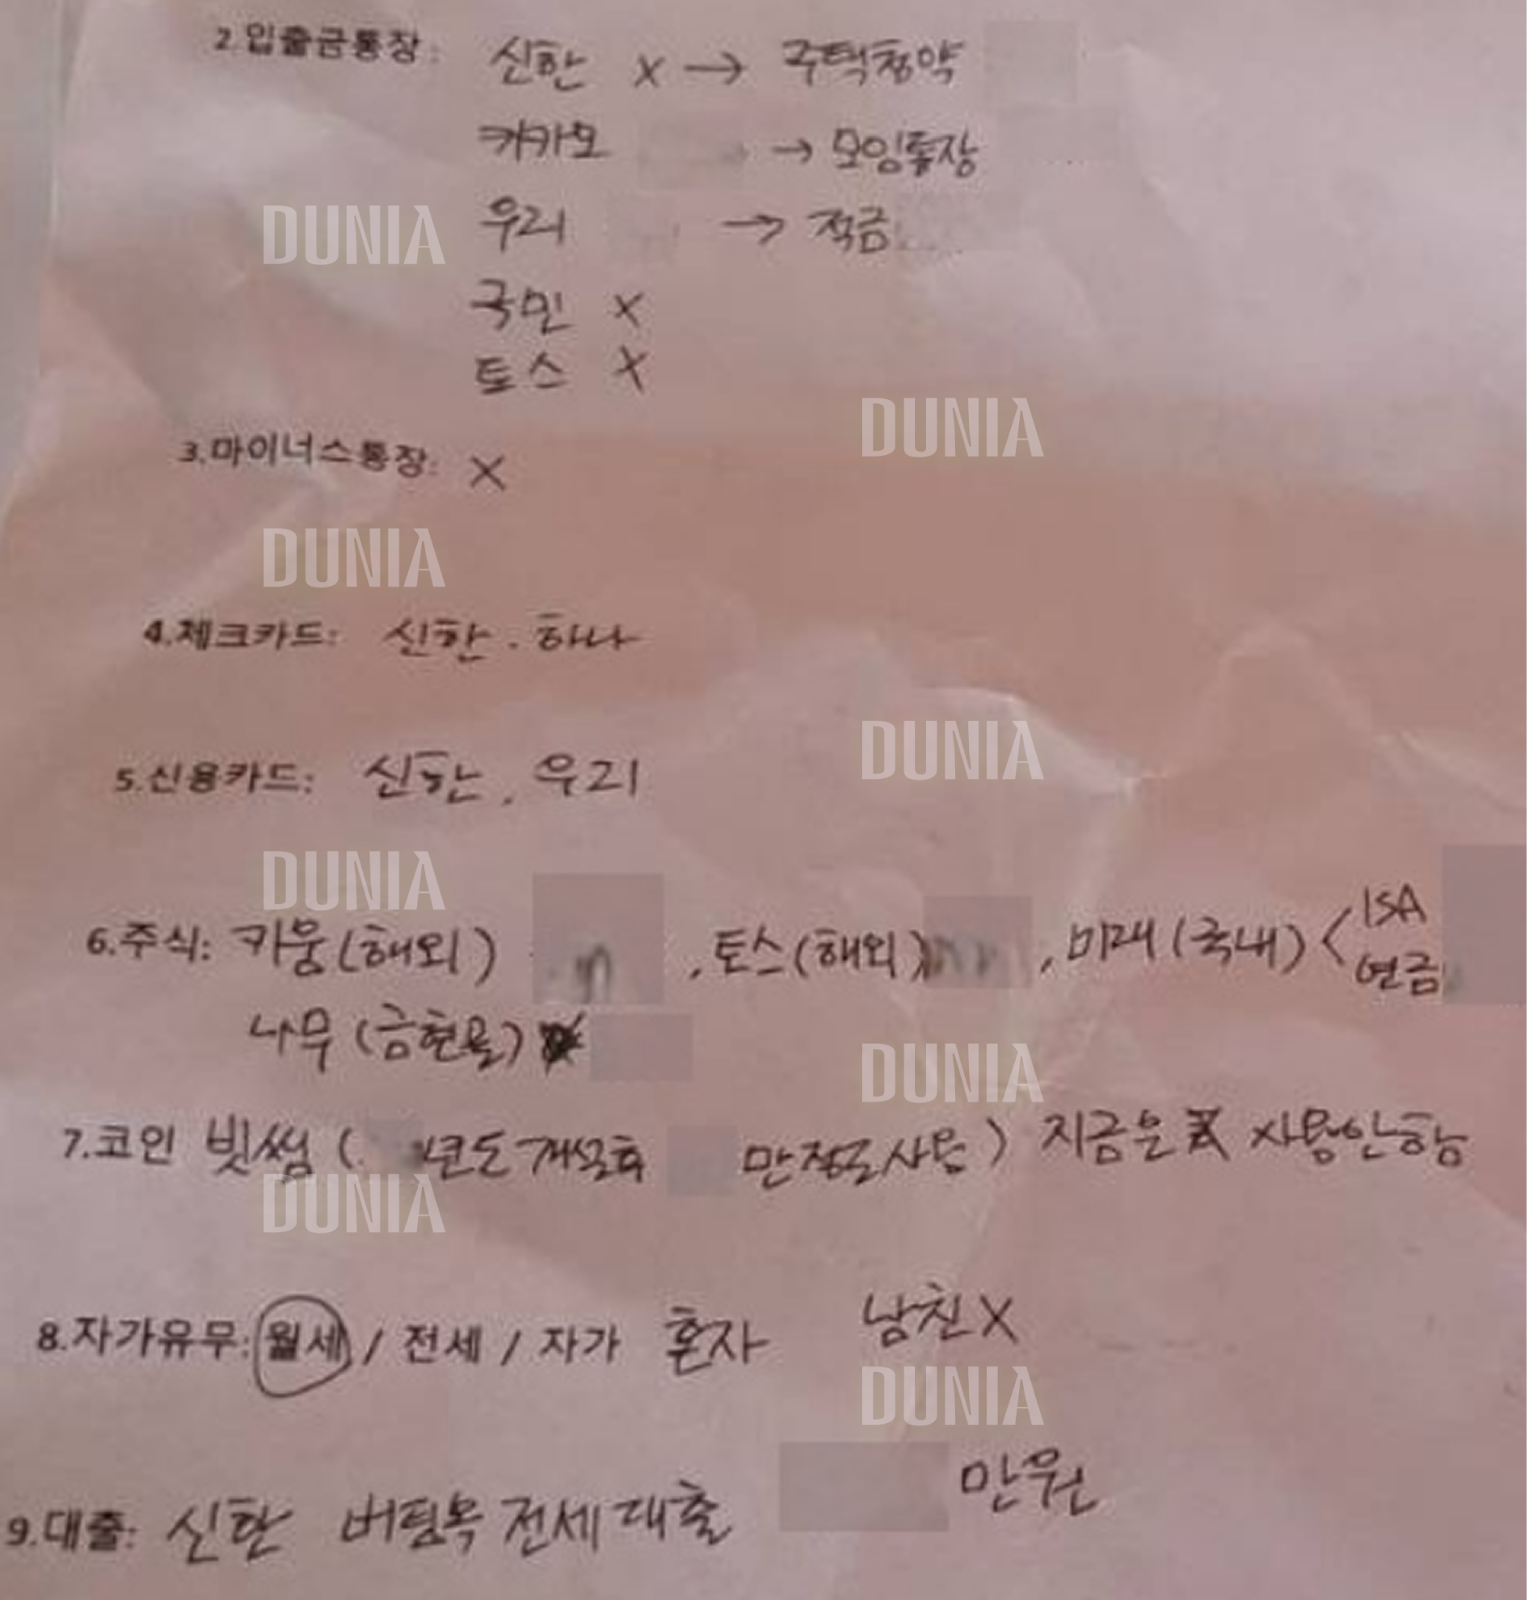 2.입출금통장: 신한 X → 주택청약
카카오 → 모임통장
우리 → 적금
국민 X
토스 X
3.마이너스통장: X
4.체크카드: 신한. 하나
5.신용카드: 신한, 우리
6.주식: 키움(해외) , 토스(해외) , 미래(국내) < ISA
연금
나무(금현물)
7.코인 빗썸 ( 년도 개설후 만정도사용) 지금은 사용안함
8.자가유무: 월세 / 전세 / 자가 혼자 남친X
9.대출: 신한 버팀목 전세대출 만원
DUNIA
DUNIA
DUNIA
DUNIA
DUNIA
DUNIA
DUNIA
DUNIA